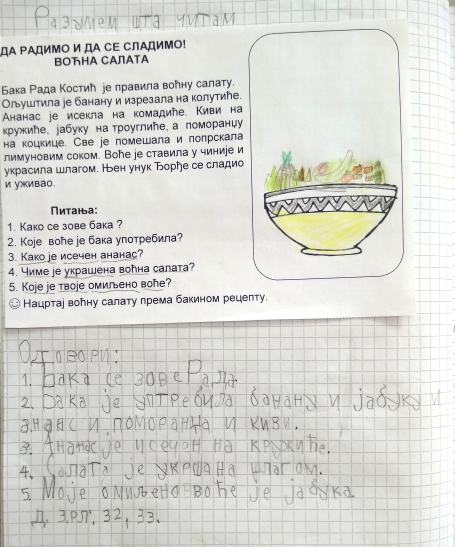 Разумем шта читам
ДА РАДИМО И ДА СЕ СЛАДИМО!
ВОЋНА САЛАТА
Бака Рада Костић је правила воћну салату.
Ољуштила је банану и изрезала на колутиће.
Ананас је исекла на комадиће. Киви на
кружиће, јабуку на троуглиће, а поморанџу
на коцкице. Све је помешала и попрскала
лимуновим соком. Воће је ставила у чиније и
украсила шлагом. Њен унук Ђорђе се сладио
и уживао.
Питања:
1. Како се зове бака ?
2. Које воће је бака употребила?
3. Како је исечен ананас?
4. Чиме је украшена воћна салата?
5. Које је твоје омиљено воће?
☺ Нацртај воћну салату према бакином рецепту.
Одговори:
1. Бака се зове Рада.
2. Бака је употребила банану и јабуку и
ананс и поморанџа и киви.
3. Ананас је исечон на кружиће.
4. Салата је укршана шлагом.
5. Моје омиљено воће је јабука.
Д. З. РЛ, 32, 33.